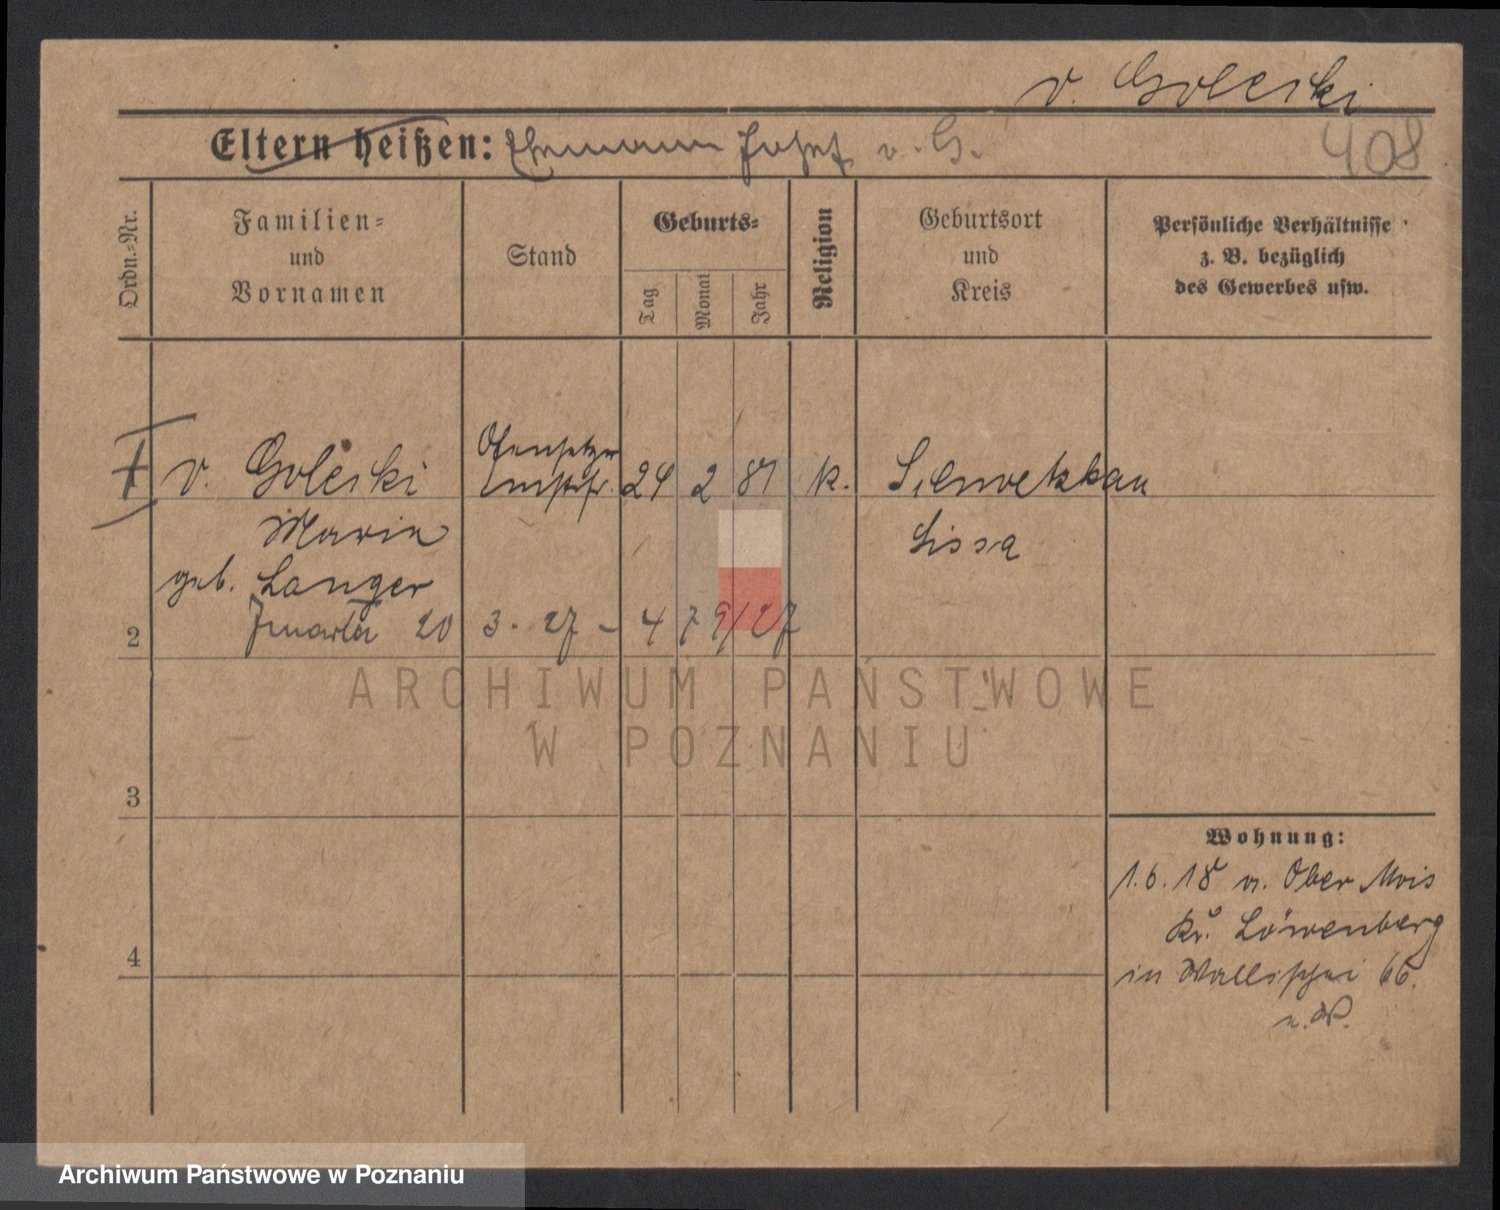 v. Goleski
Eltern heißen: Ehemann Josef v. G.
408
Ordn.=Nr.
Familien=
und
Vornamen
Stand
Geburts=
Tag
Monat
Jahr
Religion
Geburtsort
und
Kreis
Persönliche Verhältnisse
z. B. bezüglich
des Gewerbes usw.
v. Goleski
Ofensetzer
24 2 81 k.
Lissa
Maria
geb. Langer
2
Zmarła 20 3. 27 - 479/27
ARCHIWUM PAŃSTWOWE
W POZNANIU
3
Wohnung:
1.6.18 v. Ober Mois
Kr. Löwenberg
in Wallischei 66.
4
Archiwum Państwowe w Poznaniu